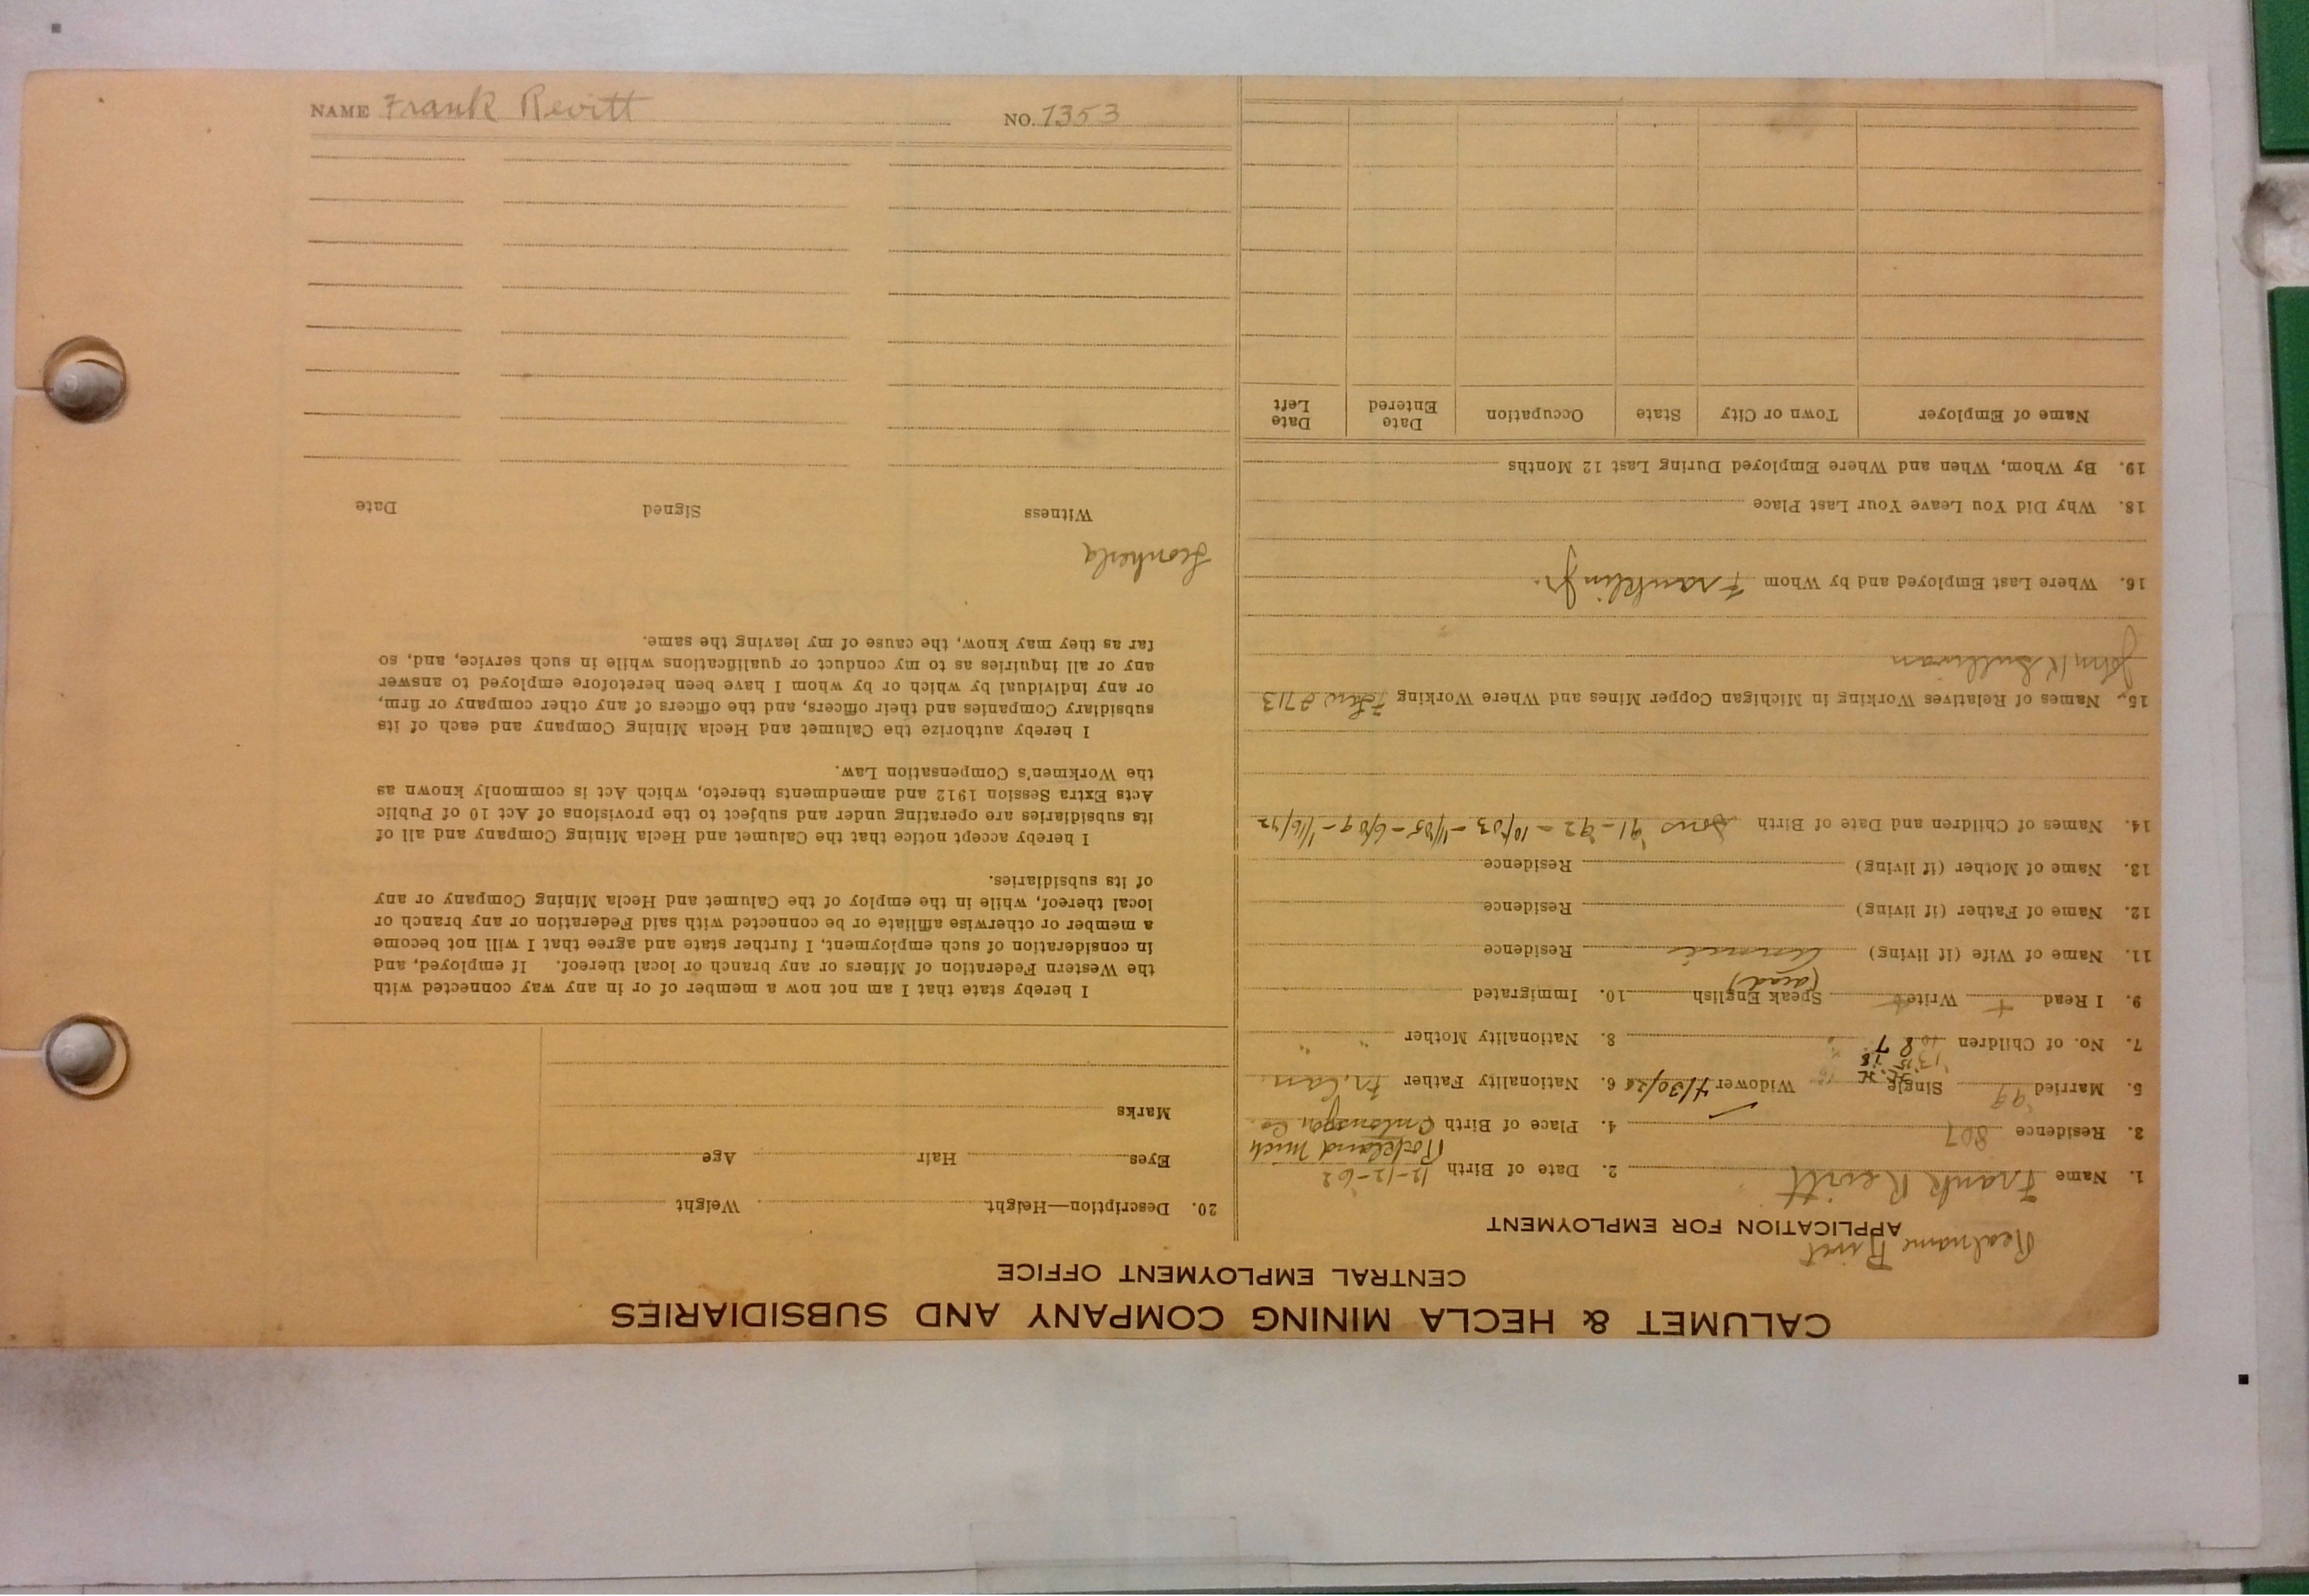 NAME Frank Revitt NO. 7353
CALUMET & HECLA MINING COMPANY AND SUBSIDIARIES
CENTRAL EMPLOYMENT OFFICE
Real name Rivet
APPLICATION FOR EMPLOYMENT
1. Name Frank Revitt 2. Date of Birth 12-12-62
Rockland Mich
3. Residence 807 4. Place of Birth Ontonagon Co.
5. Married '99 Single Widower 4/30/28 6. Nationality Father Fr. Can.
7. No. of Children 10 8 7 8. Nationality Mother " "
9. I Read + Write + Speak English 10. Immigrated
(dead)
11. Name of Wife (if living) Residence
12. Name of Father (if living) Residence
13. Name of Mother (if living) Residence
14. Names of Children and Date of Birth Sons '91-'92-10/03-4/05-6/09-1/16/12
15. Names of Relatives Working in Michigan Copper Mines and Where Working John 2713
John K Sullivan
16. Where Last Employed and by Whom Franklin Jr.
18. Why Did You Leave Your Last Place
19. By Whom, When and Where Employed During Last 12 Months
Name of Employer Town or City State Occupation Date Entered Date Left
20. Description—Height Weight
Eyes Hair Age
Marks
I hereby state that I am not now a member of or in any way connected with
the Western Federation of Miners or any branch or local thereof. If employed, and
in consideration of such employment, I further state and agree that I will not become
a member or otherwise affiliate or be connected with said Federation or any branch or
local thereof, while in the employ of the Calumet and Hecla Mining Company or any
of its subsidiaries.
I hereby accept notice that the Calumet and Hecla Mining Company and all of
its subsidiaries are operating under and subject to the provisions of Act 10 of Public
Acts Extra Session 1912 and amendments thereto, which Act is commonly known as
the Workmen's Compensation Law.
I hereby authorize the Calumet and Hecla Mining Company and each of its
subsidiary Companies and their officers, and the officers of any other company or firm,
or any individual by which or by whom I have been heretofore employed to answer
any or all inquiries as to my conduct or qualifications while in such service, and, so
far as they may know, the cause of my leaving the same.
Witness Signed Date